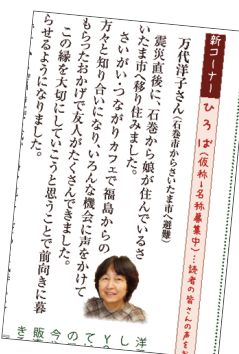 新コーナー ひろば(仮称→名称募集中)…読者の皆さんの声をお
万代洋子さん(石巻市からさいたま市へ避難)
震災直後に、石巻から娘が住んでいるさ
いたま市へ移り住みました。
さいがい・つながりカフェで福島からの
方々と知り合いになり、いろんな機会に声をかけて
もらったおかげで友人がたくさんできました。
この縁を大切にしていこうと思うことで前向きに暮
らせるようになりました。
洋
し
Y
て
の
今
販
き